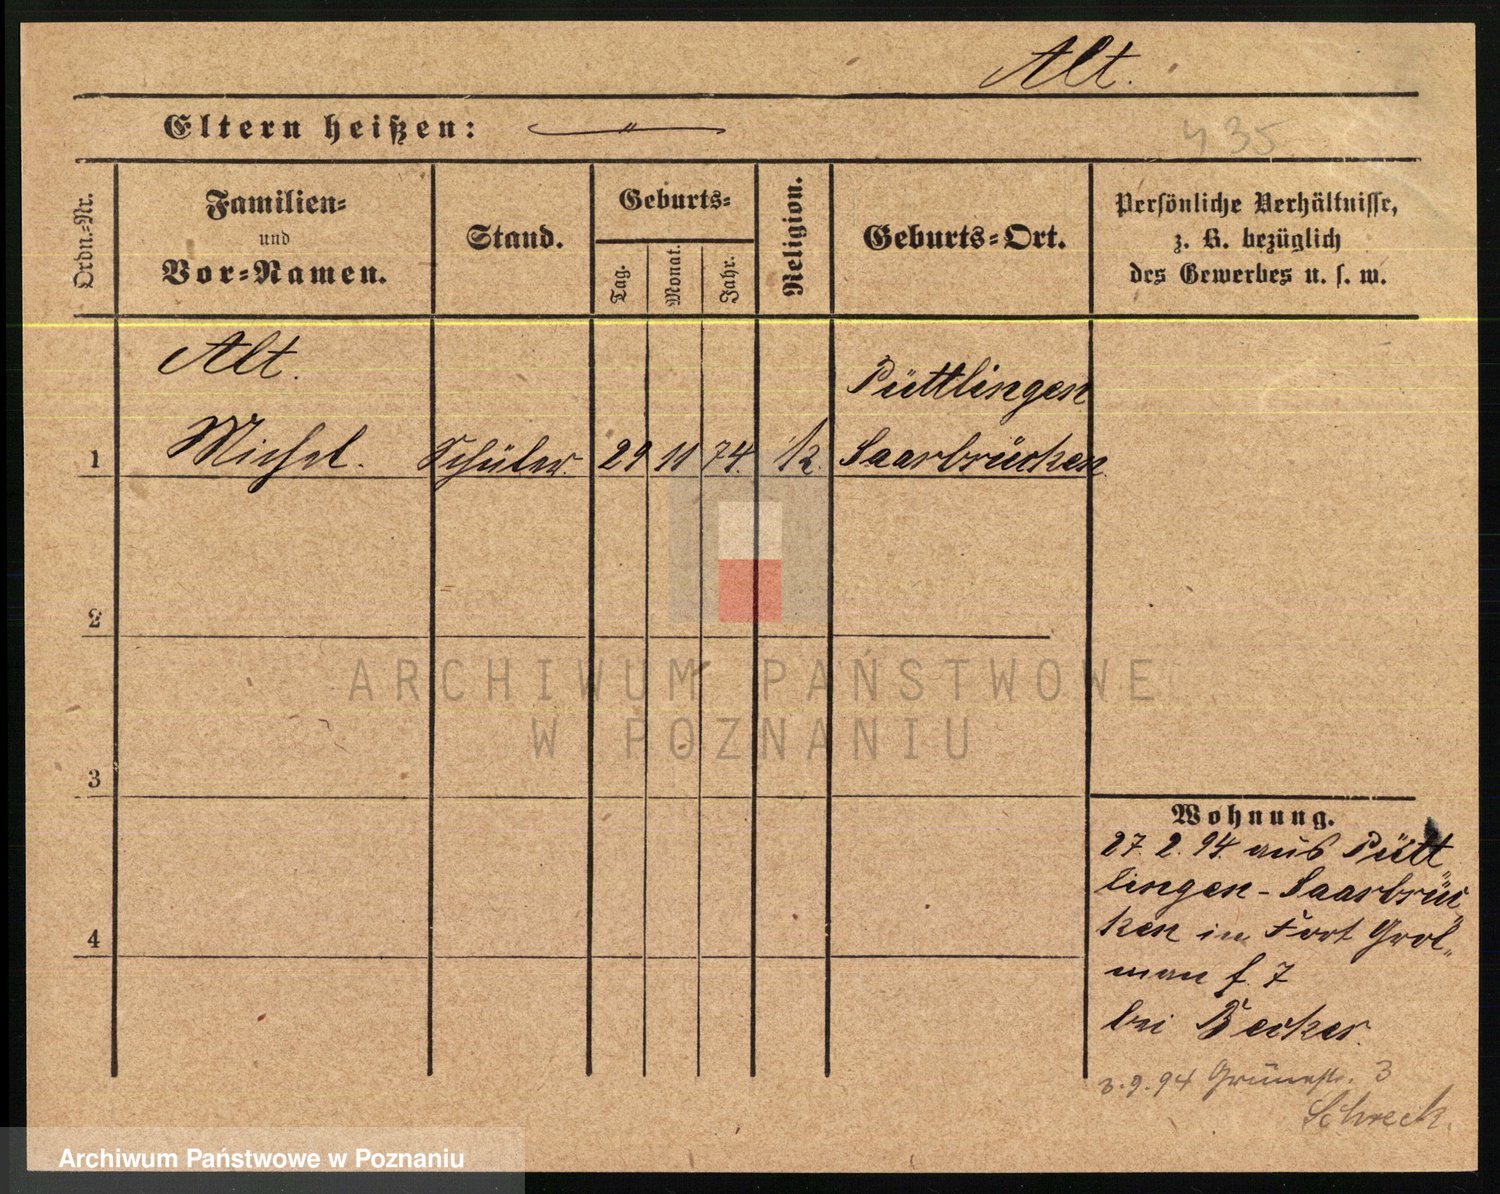 Alt.
Eltern heißen: — " —
435
Ordn.-Nr.
Familien-
und
Vor-Namen.
Stand.
Geburts-
Tag.
Monat.
Jahr.
Religion.
Geburts-Ort.
Persönliche Verhältnisse,
z. B. bezüglich
des Gewerbes u. s. w.
Alt.
Püttlingen
1 Michel. Schüler. 29 11 74. k. Saarbrücken
2
ARCHIWUM PAŃSTWOWE
W POZNANIU
3
Wohnung.
27. 2. 94. aus Pütt
lingen-Saarbrüc
4
ken in Fort Grol-
man f. 7
bei Becker.
3.9.94 Grünestr. 3
Schreck.
Archiwum Państwowe w Poznaniu